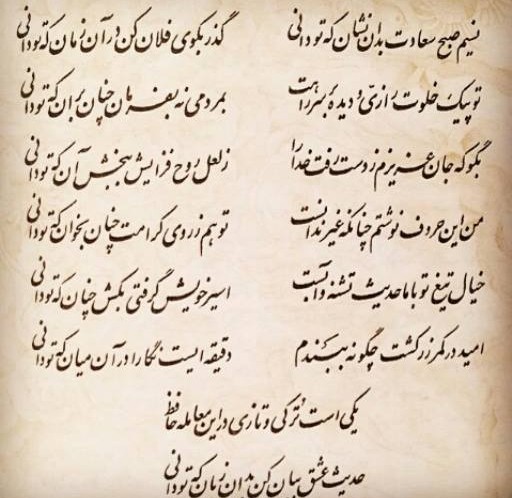 نسیم صبح سعادت بدان نشان که تو دانی گذر بکوی فلان کن در آن زمان که تو دانی
تو پیک خلوت رازی و دیده بر سر راهت بمردمی نه بفرمان چنان بران که تو دانی
بگو که جان عزیزم ز دست رفت خدا را ز لعل روح فزایش ببخش آن که تو دانی
من این حروف نوشتم چنانکه غیر ندانست تو هم ز روی کرامت چنان بخوان که تو دانی
خیال تیغ تو با ما حدیث تشنه و آبست اسیر خویش گرفتی بکش چنان که تو دانی
امید در کمر زرکشت چگونه ببندم دقیقه ایست نگارا در آن میان که تو دانی
یکی است ترکی و تازی در این معامله حافظ
حدیث عشق بیان کن بدان زبان که تو دانی